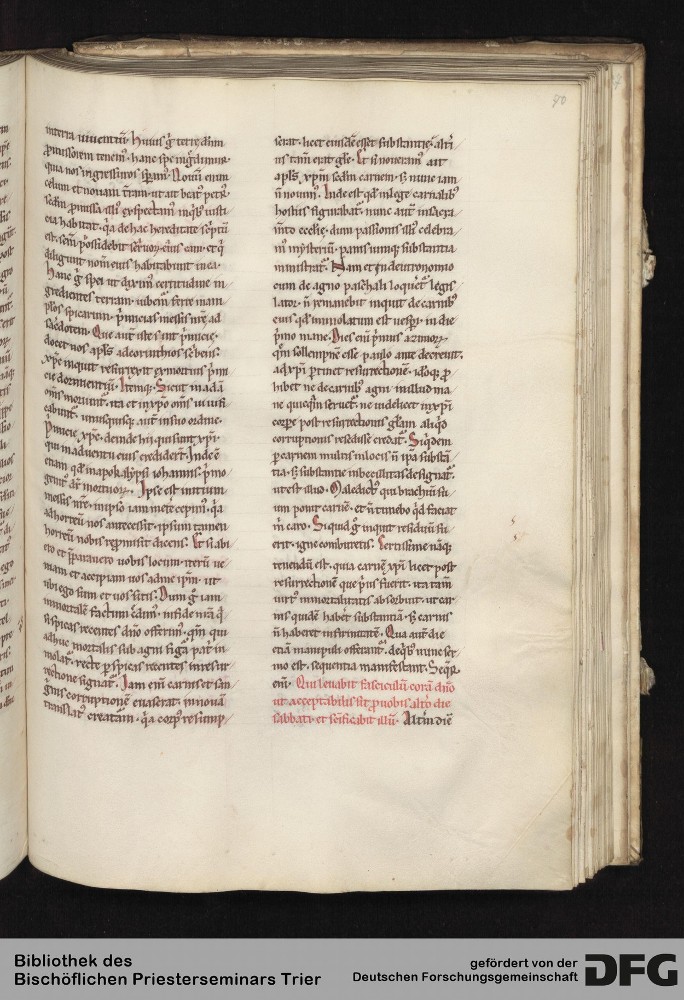 70
interia uiuentiū. Huius g̃ terrę dñm
ꝓmissorem tenem᷒. hanc spe ingredimur.
quia nos ingressuros speram᷒. Nouū enim
celum et nouam t̃ram. ut ait beat᷒ petr᷒.
scdm ꝓmissa illi᷒ exspectam᷒. in qͥb᷒ iusti
cia habitat. qͥa de hac hereditate sc̃ptū
est. sem̃ possidebit seruor̃ ei᷒ eam. et qͥ
diligunt nom̃ ei᷒ habitabunt in ea.
Hanc g̃ spei ut dixim᷒ certitudine in
gredientes terram. iubem̃ ferre mani
pl̃os spicarum. pͥmicias messis nr̃ę ad
sacerdotem. Que aut̃ iste sunt pͥmicię.
docet nos apl̃s ad corinthios sc̃bens.
xp̃c inquit resurrexit ex mortuis pͥmi
cię dormientiū. Itemq; Sicut in adā
om̃s moriunt᷑. ita et in xp̃o om̃s uiuifi
cabunt᷑. unusquisq; aut̃ in suo ordine.
pͥmicię xp̃c. deinde hii qui sunt xp̃i.
qui in aduentu ei᷒ crediderͭ. Inde ē
etiam qd̃ in apokalypsi iohannis. pͥmo
genit᷒ dr̃ mortuor̃. Ipse est initium
messis nr̃e. in ipso iam metere cepim᷒. qͥa
ad horreū nos antecessit. ipsum tamen
horreū nobis repromisit dicens. Et si abi
ero et p̃parauero uobis locum. iterū ue
niam et accipiam uos ad me ipm̃. ut
ubi ego sum et uos sitis. Dum g̃ iam
inmortalē factum credim᷒. in fide nr̃a qͣ
si spicas recentes dñō offerim᷒. qm̃ qui
adhuc mortalis sub agni figͣ pat᷑ in
molat᷑. recte ꝑ spicas recentes in resur
rectione signat᷑. Iam em̃ carnis et san
guinis corruptionē euaserat. in nouā
translat᷒ creatam̃. qͥa corp᷒ resump
serat. licet eiusdē esset substantię. alti᷒
ius tam̃ erat gl̃e. Et si nouerim᷒ ait
apl̃s xp̃m scdm carnem. sꝫ nunc iam
ñ nouim᷒. Inde est qd̃ in lege carnalib᷒
hostiis figurabat᷑. nunc aut̃ in sacra
m̃to ecclię. dum passionis illi᷒ celebra
m᷒ mysteriū. panis uiniq; substantia
ministrat᷑. Nam et in deutronomio
cum de agno paschali loqueret᷑ legis
lator. ñ remanebit inquit de carnib᷒
ei᷒ qd̃ immolatum est uespi. in die
pͥmo mane. Dies em̃ pͥmus azimor̃
qm̃ sollempne esse paulo ante decreuit.
ad xp̃i ꝑtinet resurrectionē. idōq; ꝓ
hibet ne de carnib᷒ agni in illud ma
ne quicqͣm seruet᷑. ne uidelicet in xp̃i
corpe post resurrectionis gl̃am aliqͥd
corruptionis resedisse credat᷑. Siqͥdem
ꝑ carnem multis in locis ñ ipͣa substā
tia. sꝫ substantie inbecillitas designat᷑.
ut est illud. Maledict᷒ qui brachiū su
um ponit carnē. et ñ timebo qͥd faciat
m̃ caro. Si quid g̃ inquit residuū fu
erit. igne comburetis. Certissime nāq;
tenendū est. quia carnē xp̃i licet post
resurrectionē que pͥus fuerit. ita tam̃
uirt᷒ inmortalitatis absorbuit. ut car
nis quidē habet substantiā. sꝫ carnis
ñ haberet infirmitatē. Qua aut̃ die
etiā manipuli offerant᷑. de qͥb᷒ nunc ser
mo est. sequentia manifestant. Seqͥt᷑
em̃. Qui leuabit fasciculū corā dño
ut acceptabilis sit ꝓ nobis altͦo die
sabbati. et sc̃ificabit illū. Altͥum diē
Bibliothek des
Bischöflichen Priesterseminars Trier
gefördert von der
Deutschen Forschungsgemeinschaft
DFG